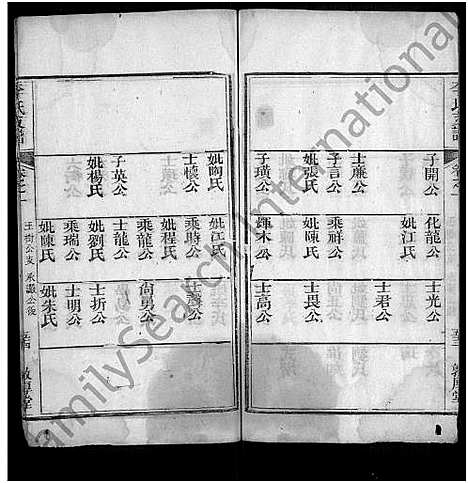 子開公
士廉公
子言公
妣張氏
子璜公
化龍公
妣江氏
乘祥公
妣陳氏
輝木公
士光公
士君公
士長公
士高公
五十三
敦厚堂
妣陶氏
士懷公
子英公
妣楊氏
妣江氏
乘時公
妣程氏
乘龍公
士龍公
妣劉氏
乘瑞公
妣陳氏
尙勇公
士折公
士明公
妣朱氏
五十四
敦厚堂
FamilySearch International